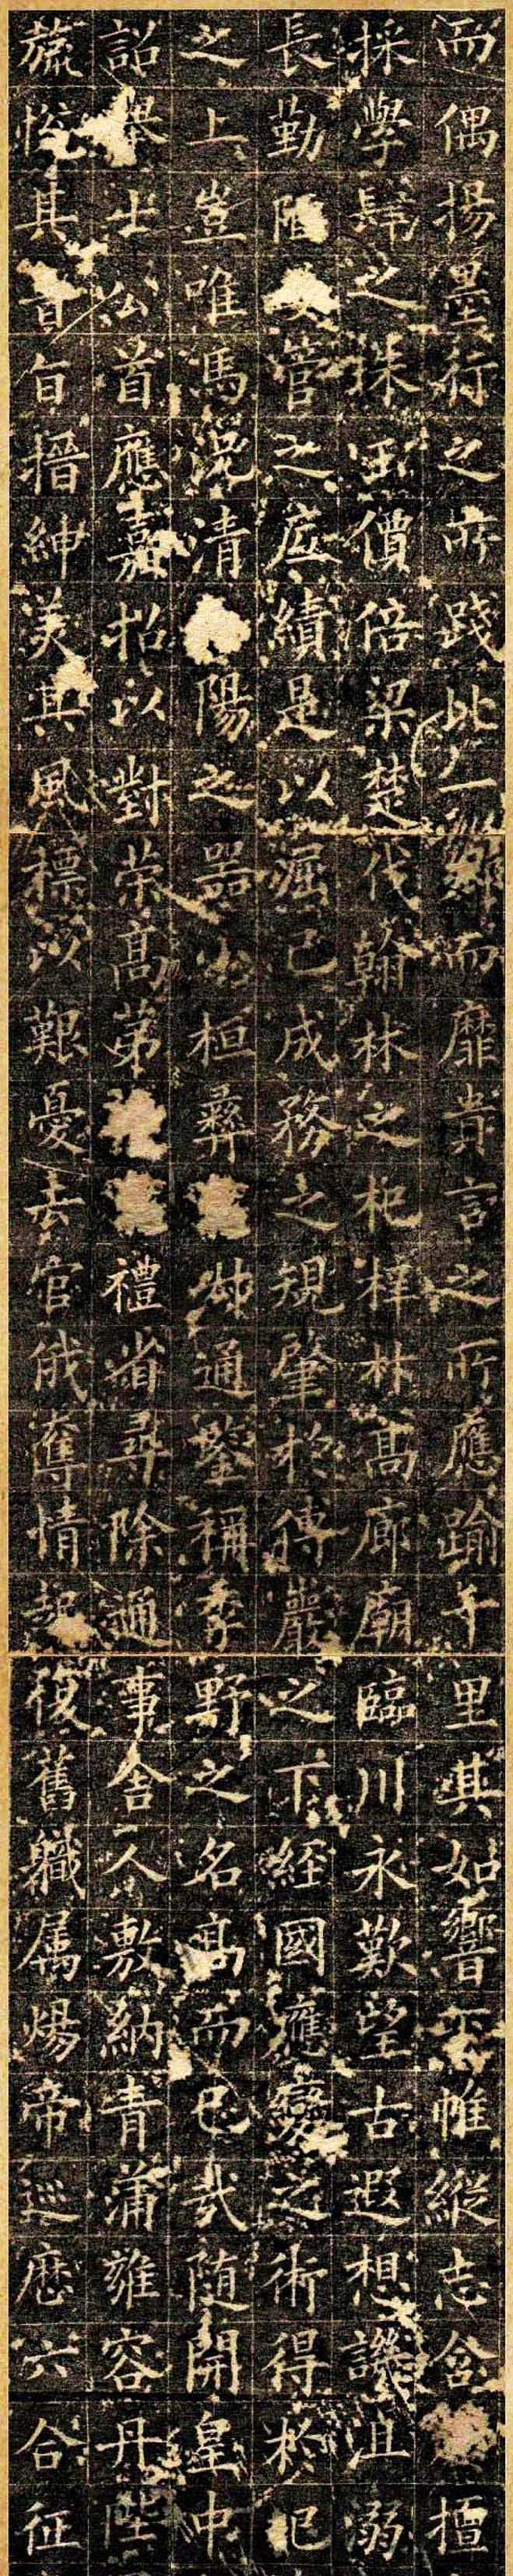 而偶揚墨行之所踐比一鄉而靡貴言之所應踰千里其如響帷縱志含擅
採學肆之珠玉價倍梁楚伐翰林之杞梓林高廊廟臨川永歎望古遐想譏沮溺
長勤陋管之庶績是以崛己成務之規肇於傅巖之下經國應變之術得於圯
之上豈唯馮清陽之器桓彝通鑒稱野之名高而已哉隨開皇中
詔舉士公首應嘉招以對荣高第禮省尋除通事舍人敷納青蒲雍容丹陛
其旨搢紳美其風標以艱憂去官俄奪情起復舊職属煬帝巡歷六合征